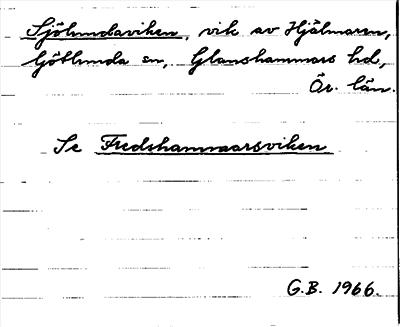 Sjölundaviken, vik av Hjälmaren,
Götlunda sn, Glanshammars hd,
Ör. län.
Se Fredshammarsviken
G.B. 1966.